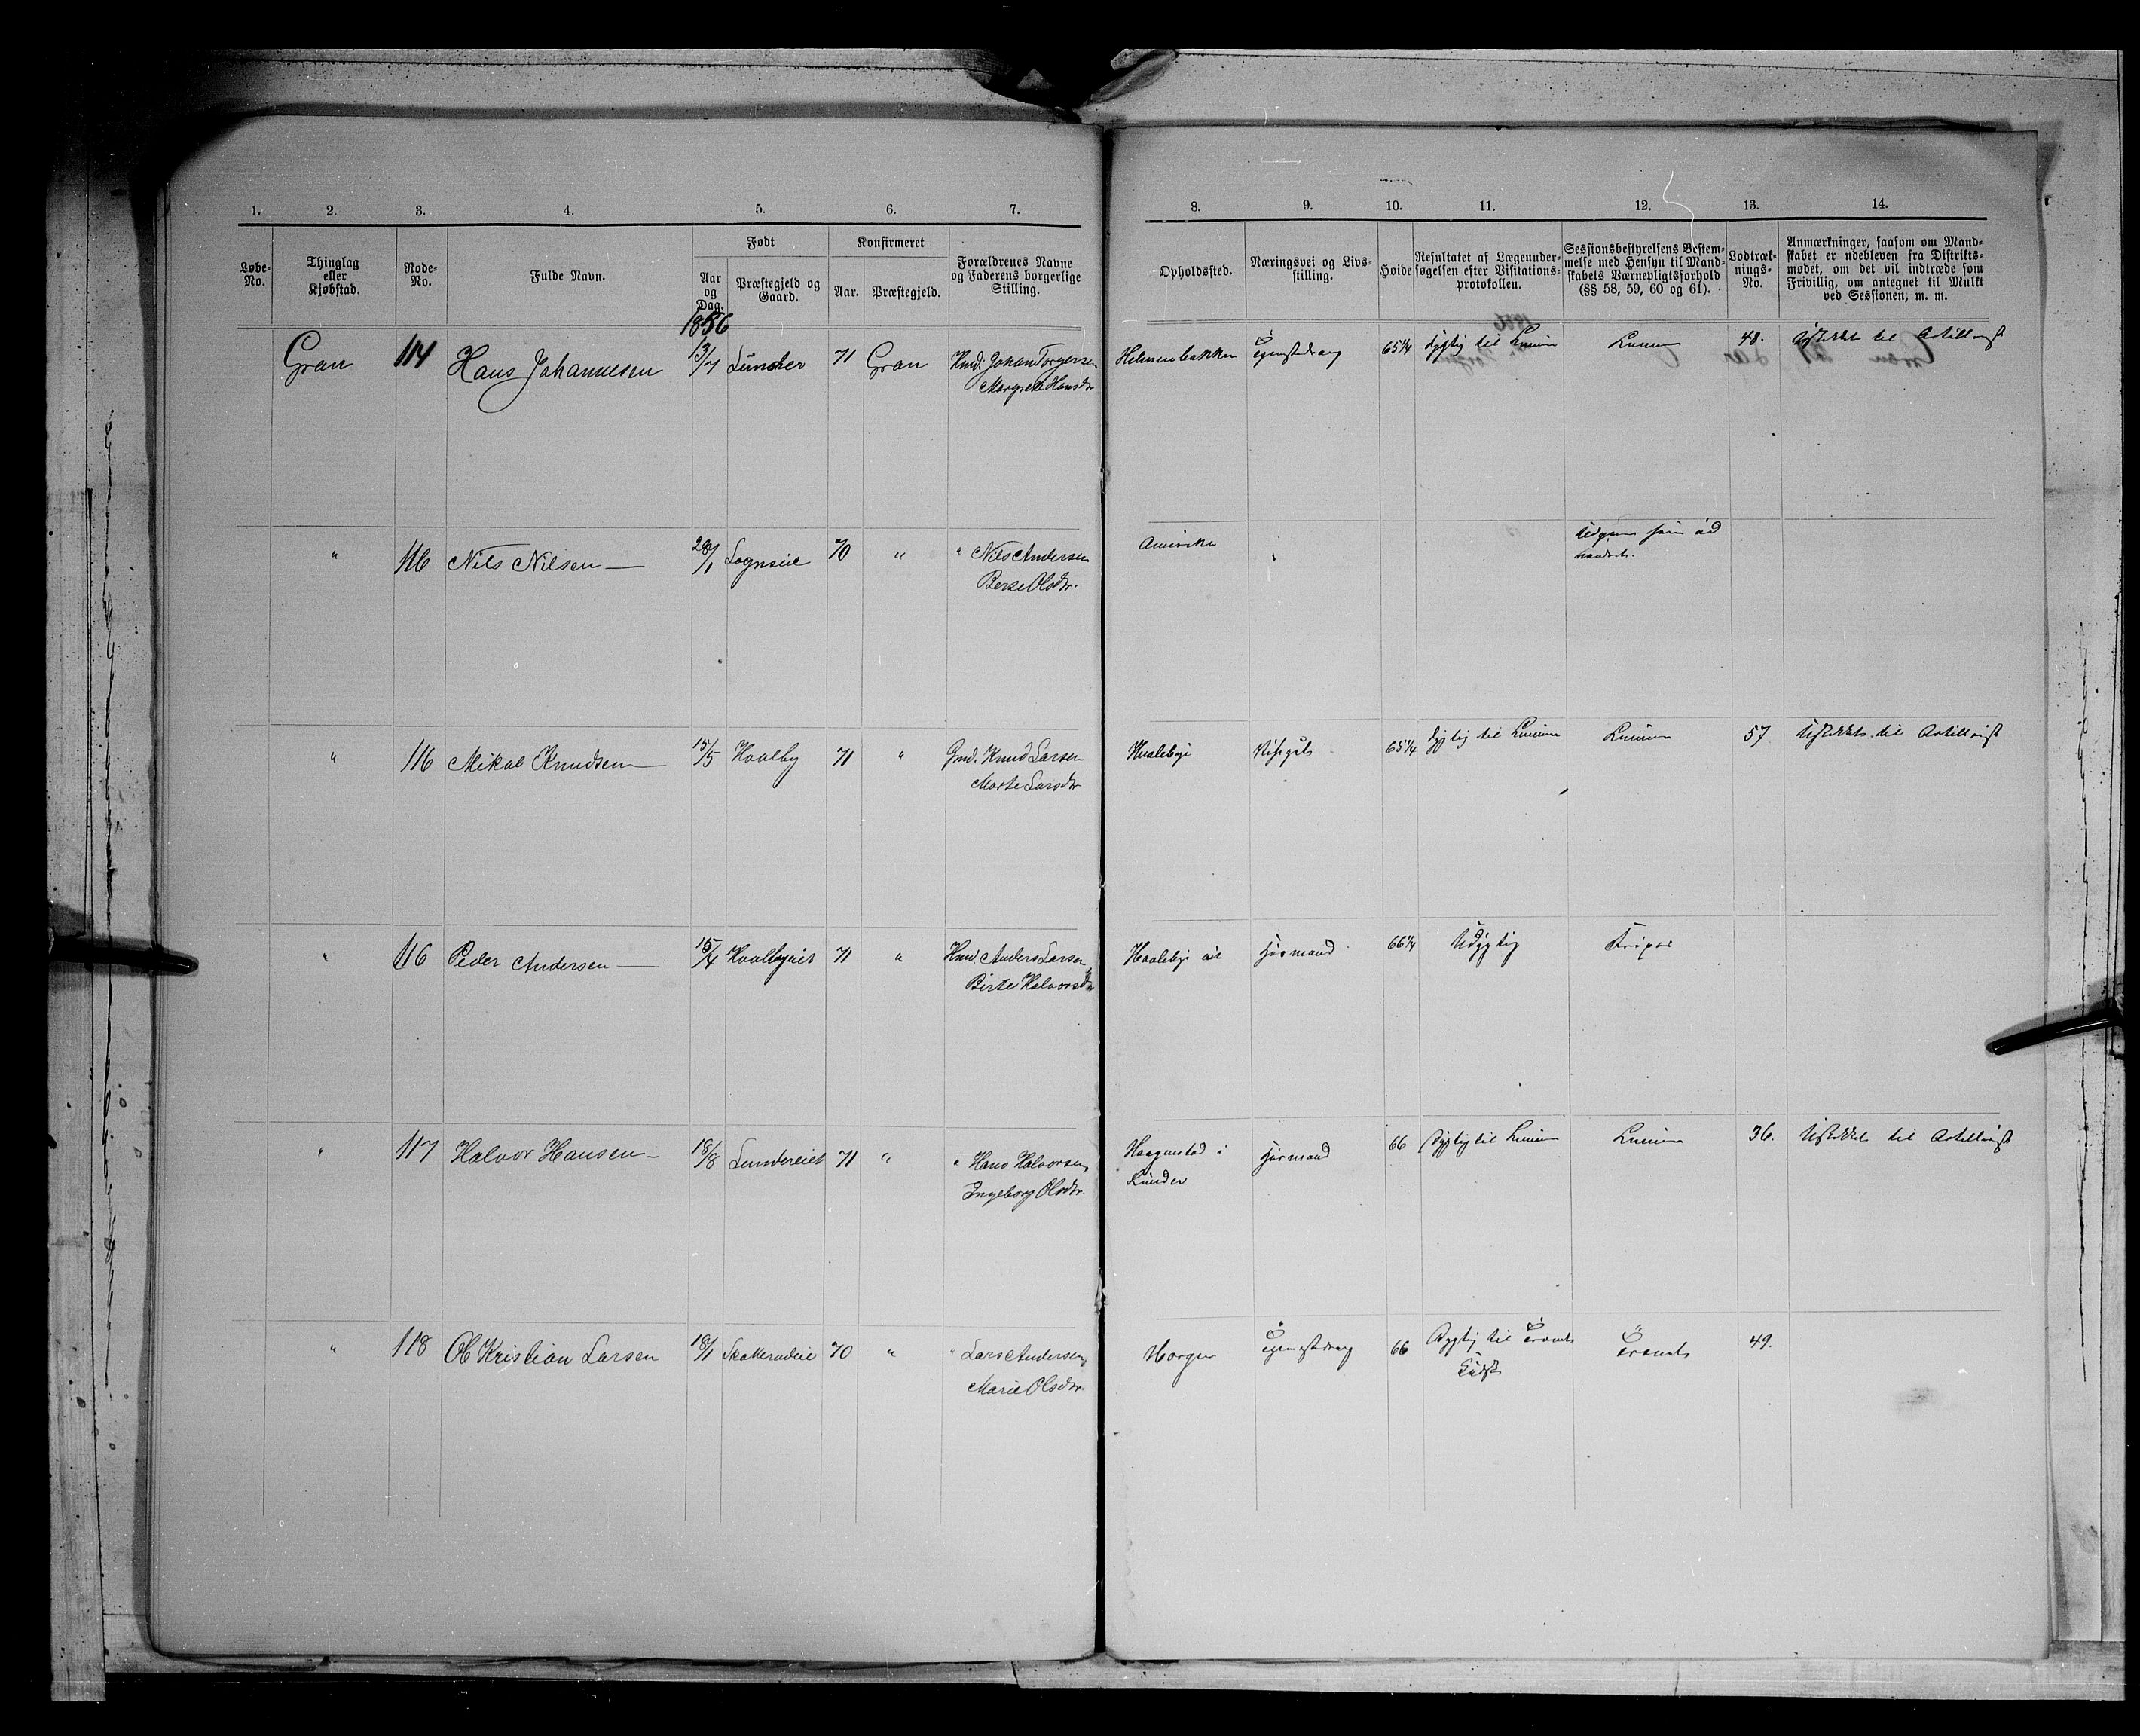 1. 2. 3. 4. 5. 6. 7. 8. 9. 10. 11. 12. 13. 14.
Løbe-No.
Thinglag eller Kjøbstad.
Rode-No.
Fulde Navn.
Født
Aar og Dag.
Præstegjeld og Gaard.
Konfirmeret
Aar.
Præstegjeld.
Forældrenes Navne og Faderens borgerlige Stilling.
Opholdssted.
Næringsvei og Livsstilling.
Høide
Resultatet af Lægeundersøgelsen efter Visitationsprotokollen.
Sessionsbestyrelsens Bestemmelse med Hensyn til Mandskabets Værnepligtsforhold (§§ 58, 59, 60 og 61).
Lodtræknings-No.
Anmærkninger, saasom om Mandskabet er udebleven fra Distriktsmødet, om det vil indtræde som Frivillig, om antegnet til Mulkt ved Sessionen, m. m.
1856
Gran 114 Hans Johannesen 13/7 Lunder 71 Gran Hmd. Johan Torgersen 65 1/4 dygtig til Linien Linien 48.
Margrete Hansdr
" 116 Nils Nilsen 28/1 Lognseie 70 " " Nils Andersen Amerika
Olsdr.
" 116 Mikal Knudsen 15/5 Hvalby 71 " Gmd. Knud Larsen 65 1/4 dygtig til Linien Linien 57
Marte Larsdr
" 116 Peder Andersen 15/4 Hvalbyeiet 71 " Hmd Anders Larsen 66 1/4 Udygtig
Birte Halvorsdr
" 117 Halvor Hansen 18/8 Lundereiet 71 " " Hans Halvorsen 66 dygtig til Linien Linien 36.
Ingeborg Olsdr. Lunder
" 118 Ole Kristian Larsen 18/1 70 " " Lars Andersen 66 Dygtig til 49.
Marie Olsdr.